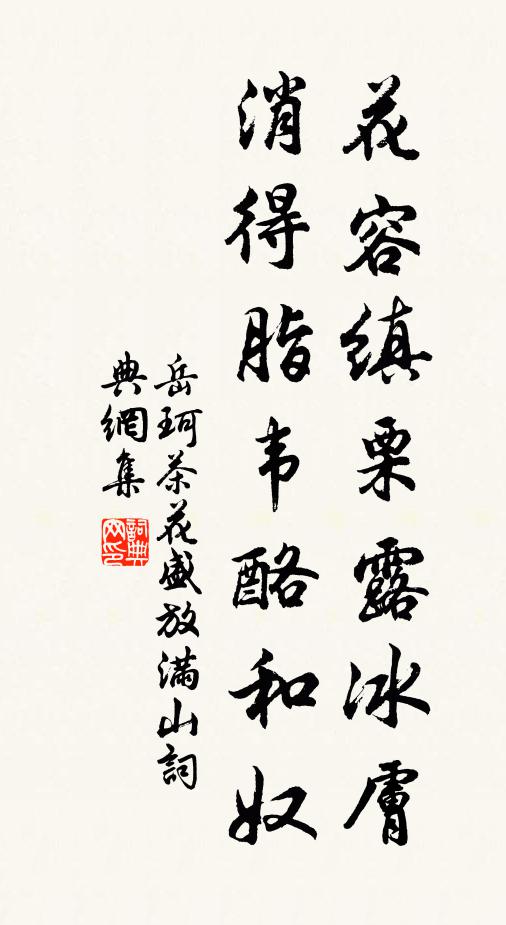 花容缜栗露冰膚
消得脂韦酪和奴
岳珂茶花盛放滿山詞
典網集
詞典网印